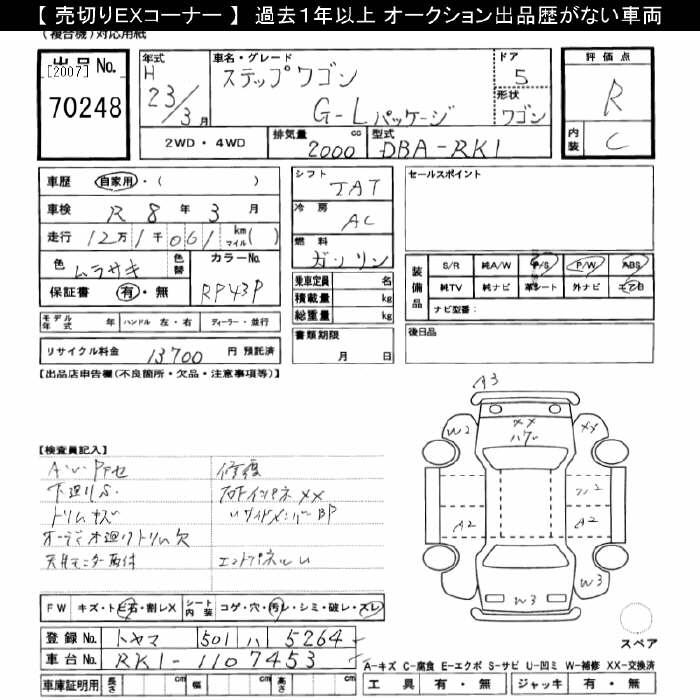 【 売切りEXコーナー 】 過去1年以上 オークション出品歴がない車両
(複合機)対応用紙
出品No.
[2007]
70248
年式
H
23/3月
車名・グレード
ステップワゴン
G-Lパッケージ
ドア
5
形状
ワゴン
評価点
R
内装
C
2WD・4WD
排気量
2000
cc
型式
DBA-RK1
車歴
自家用・( )
車検
R 8年 3月
走行
12万1千061 km マイル( )
色
ムラサキ
色替
カラーNo.
RP43P
保証書
有・無
シフト
IAT
冷房
AC
燃料
ガソリン
乗車定員 名
積載量 kg
総重量 kg
書類期限
月 日
セールスポイント
装備品
S/R 純A/W P/S P/W ABS
純TV 純ナビ 革シート 外ナビ エアB
ナビ型番:
後日品
モデル年式 年
ハンドル 左・右
ディーラー・並行
リサイクル料金
13700
円 預託済
【出品店申告欄(不良箇所・欠品・注意事項等)】
【検査員記入】
下廻りS.
トリムキズ
オーディオ廻りトリム欠
天井モニター取付
修復
フロントインパネXX
〃サイドメンバーBP
エンドパネルU
A3
W2
XX
ハゲ
XX
A2
A2
W3
W3
スペア
FW
キズ・トビ石・割レX
シート内装
コゲ・穴・汚レ・シミ・破レ・スレ
登録No.
トヤマ 501 ハ 5264
車台No.
RK1-1107453
車庫証明用
長さ cm
幅 cm
高さ cm
A-キズ C-腐食 E-エクボ S-サビ U-凹ミ W-補修 XX-交換済
工具 有・無
ジャッキ 有・無